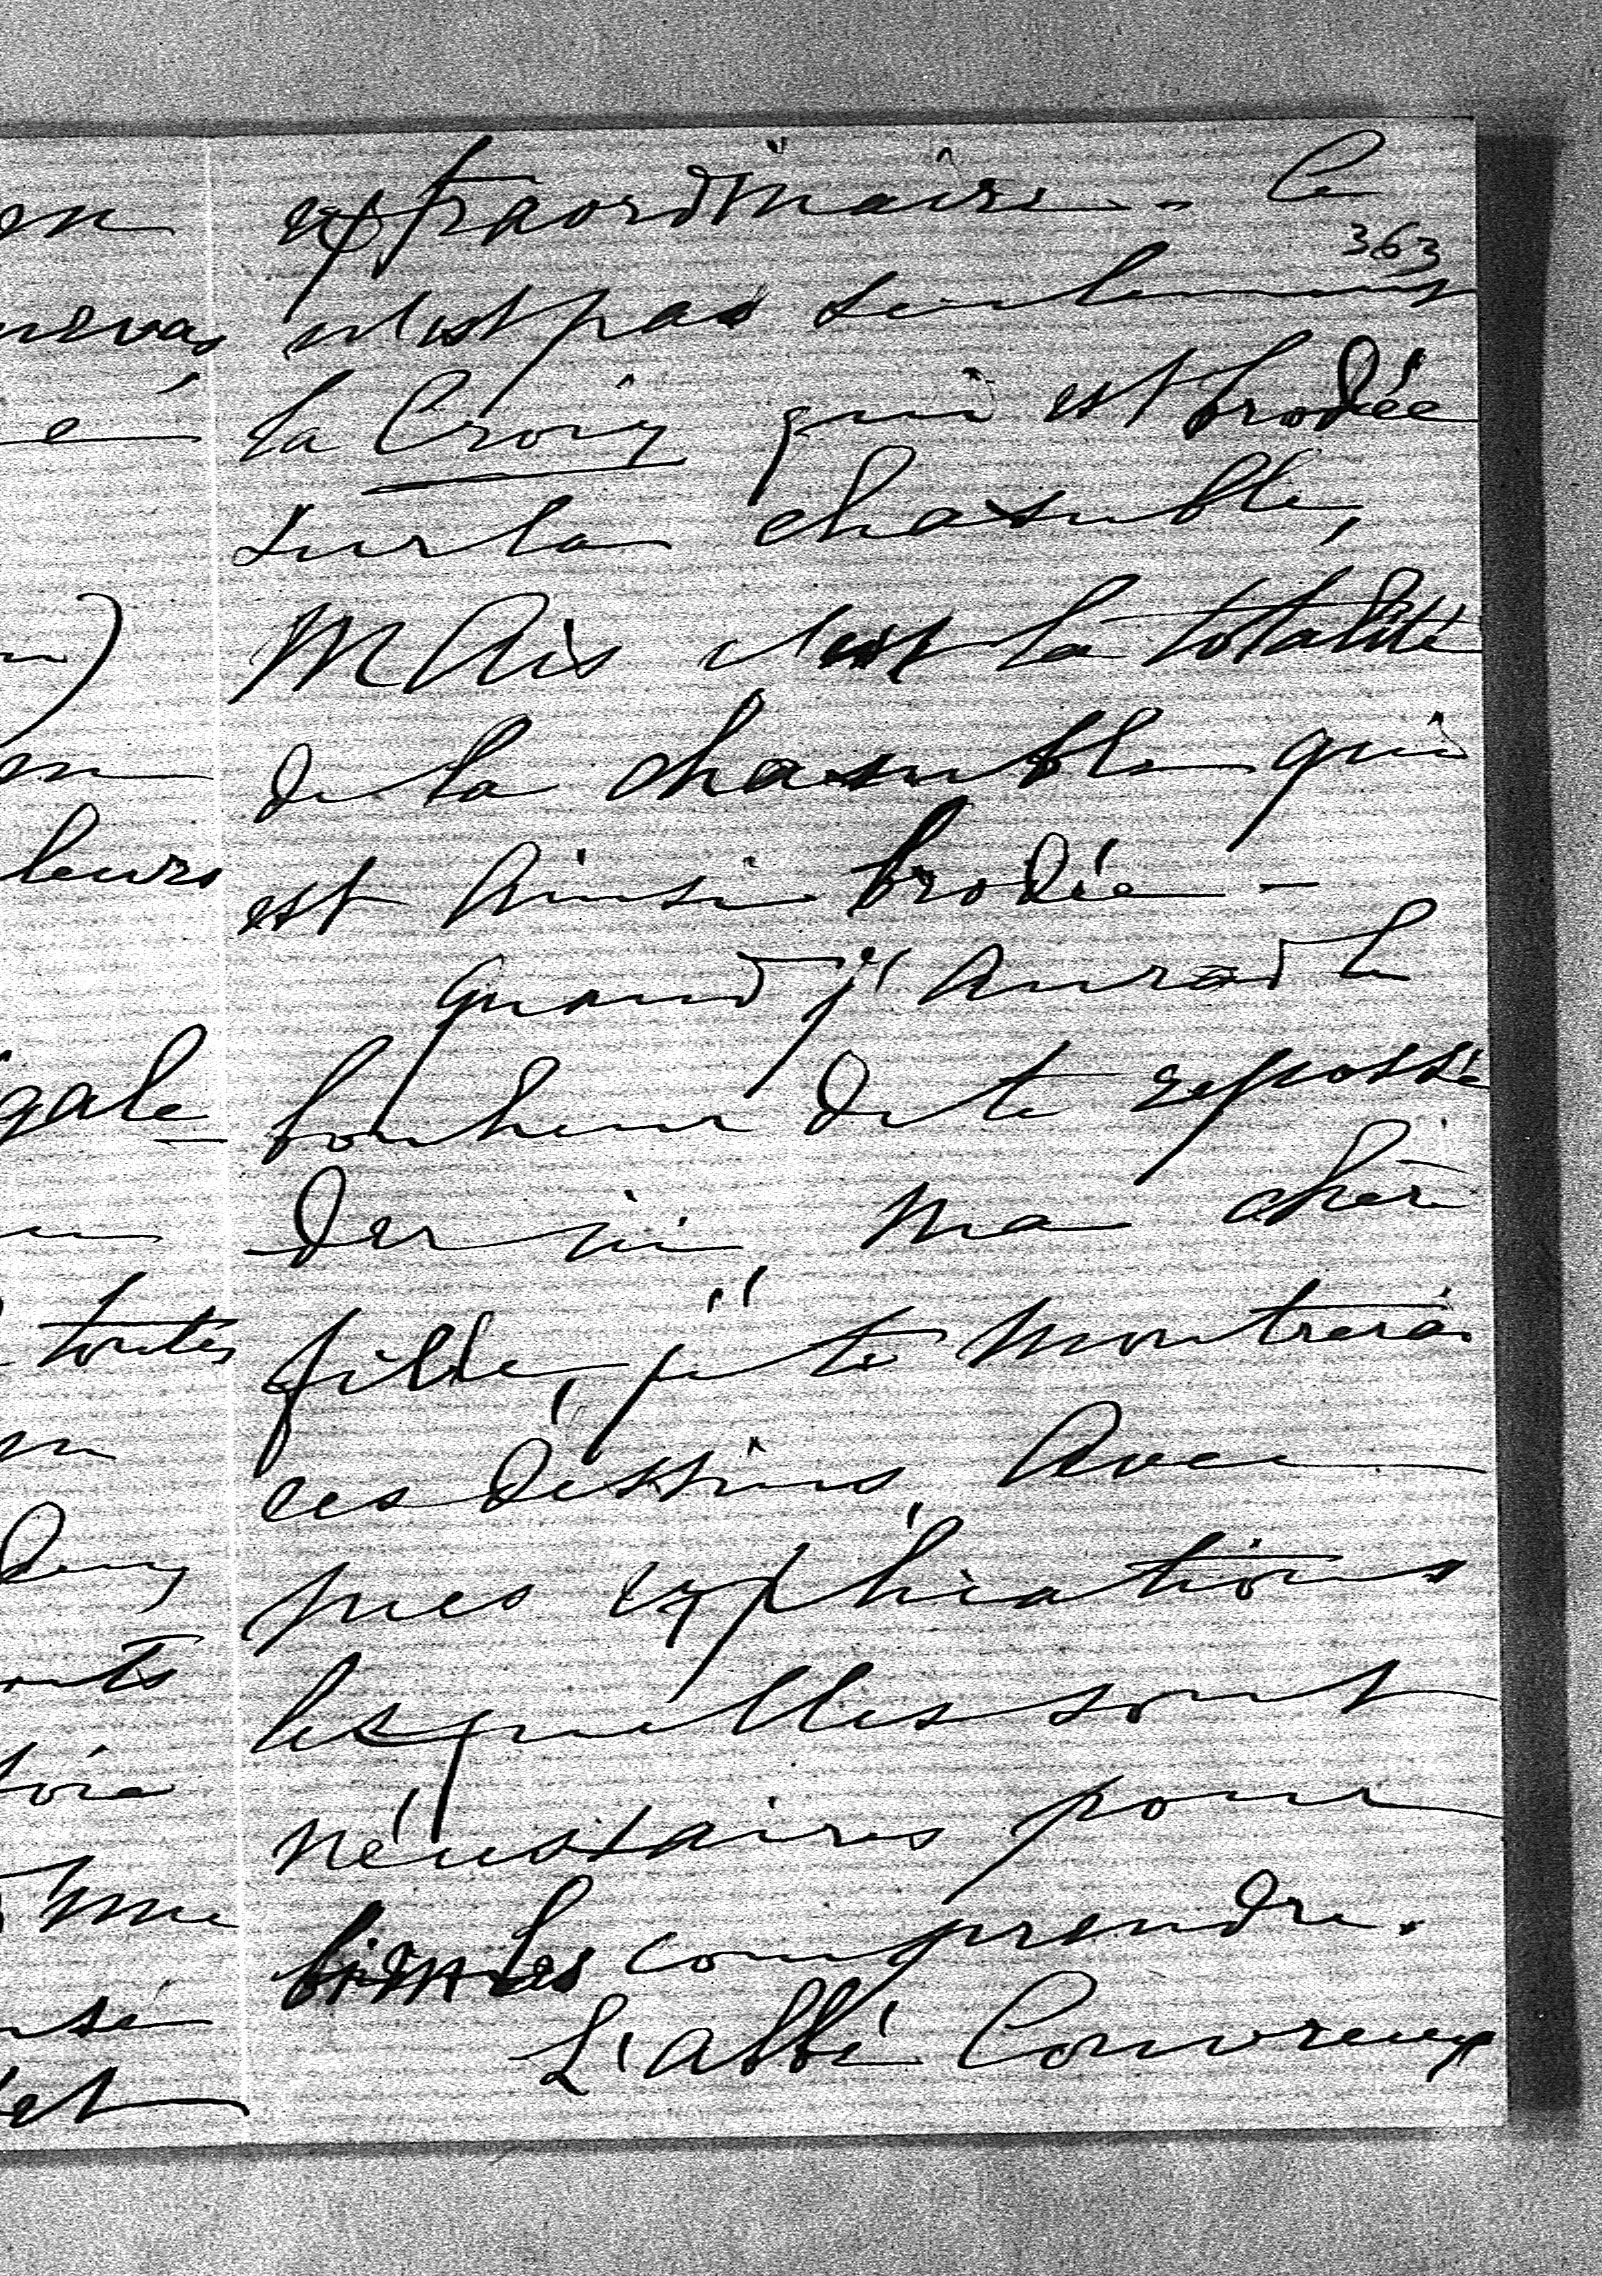 extraordinaire. Ce
363
n'est pas seulement
la Croix qui est brodée
sur la chasuble,
Mais c'est la totalité
de la chasuble qui
est Ainsi brodée —
quand j'Aurai le
bonheur de te repossé
der ici, ma chère
fille, je te montrerai
ces dessins, Avec
mes explications
lesquelles sont
nécessaires pour
bien les comprendre.
L'abbé Couvreux
leurs
toutes